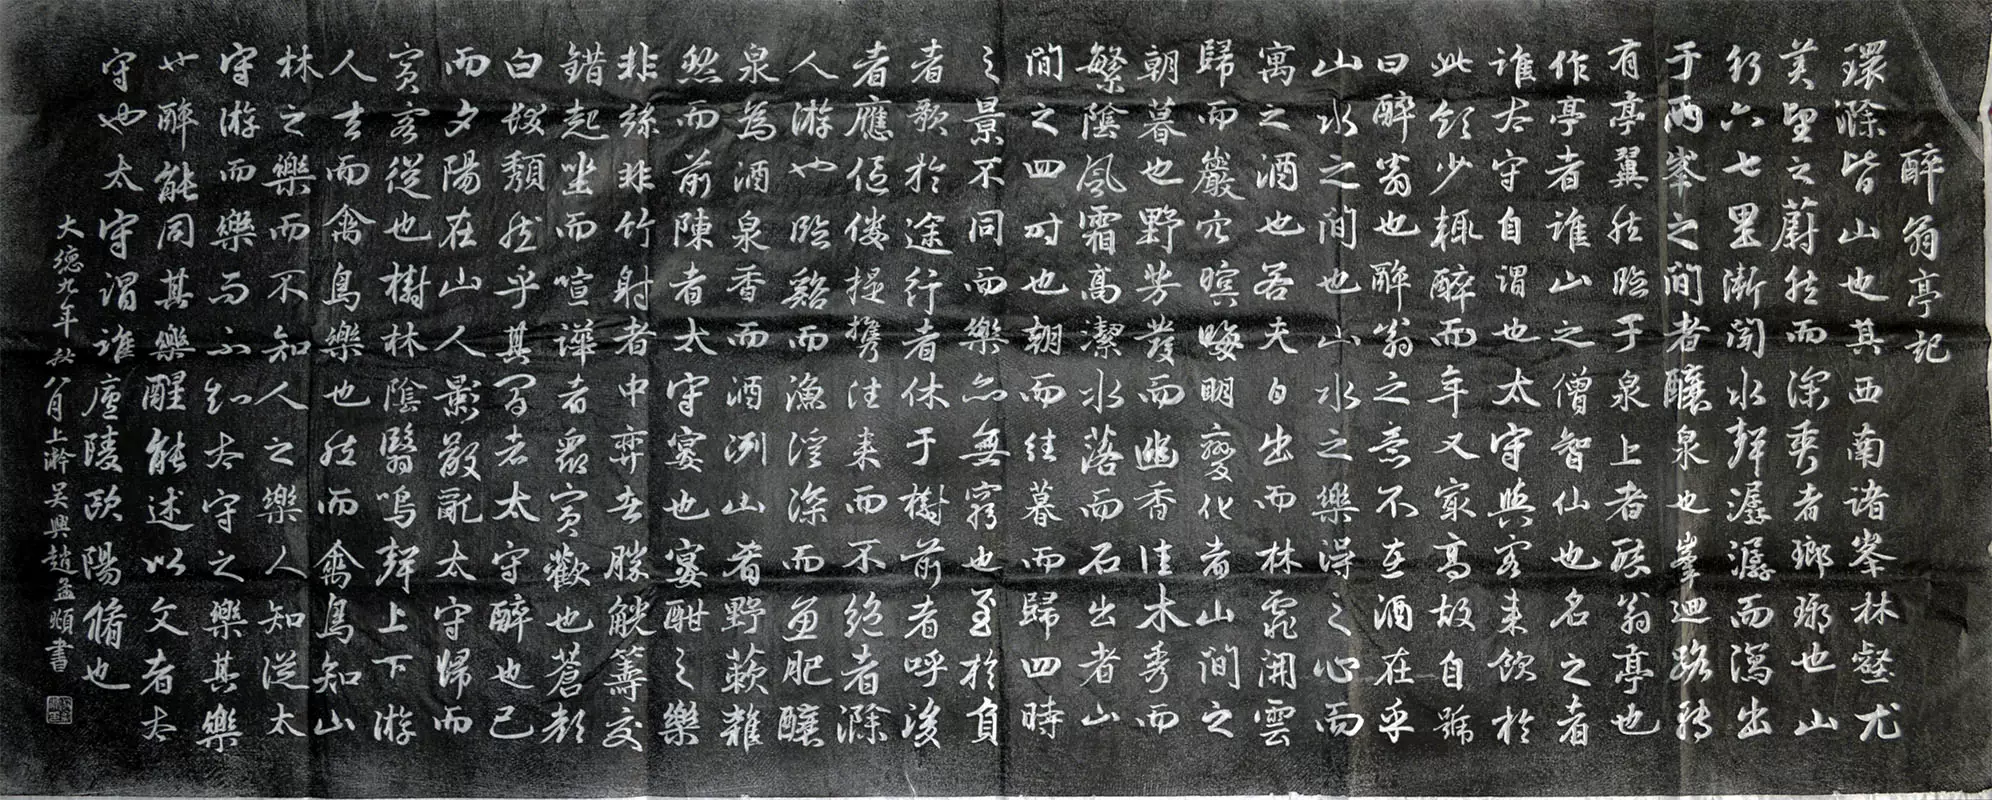 醉翁亭記
環滁皆山也其西南諸峯林壑尤
美望之蔚然而深秀者瑯琊也山
行六七里漸聞水聲潺潺而瀉出
于兩峯之間者釀泉也峯迴路轉
有亭翼然臨于泉上者醉翁亭也
作亭者誰山之僧智仙也名之者
誰太守自謂也太守與客来飲於
此飲少輒醉而年又最高故自號
曰醉翁也醉翁之意不在酒在乎
山水之間也山水之樂得之心而
寓之酒也若夫日出而林霏開雲
歸而巖穴暝晦明變化者山間之
朝暮也野芳發而幽香佳木秀而
繁陰風霜高潔水落而石出者山
間之四時也朝而往暮而歸四時
之景不同而樂亦無窮也至於負
者歌於途行者休于樹前者呼後
者應傴僂提攜往来而不絕者滁
人游也臨谿而漁溪深而魚肥釀
泉為酒泉香而酒洌山肴野蔌雜
然而前陳者太守宴也宴酣之樂
非絲非竹射者中弈者勝觥籌交
錯起坐而喧譁者眾賓歡也蒼顏
白髮頹然乎其間者太守醉也已
而夕陽在山人影散亂太守歸而
賓客從也樹林陰翳鳴聲上下游
人去而禽鳥樂也然而禽鳥知山
林之樂而不知人之樂人知從太
守游而樂而不知太守之樂其樂
也醉能同其樂醒能述以文者太
守也太守謂誰廬陵歐陽脩也
大德九年秋八月上澣吴興趙孟頫書